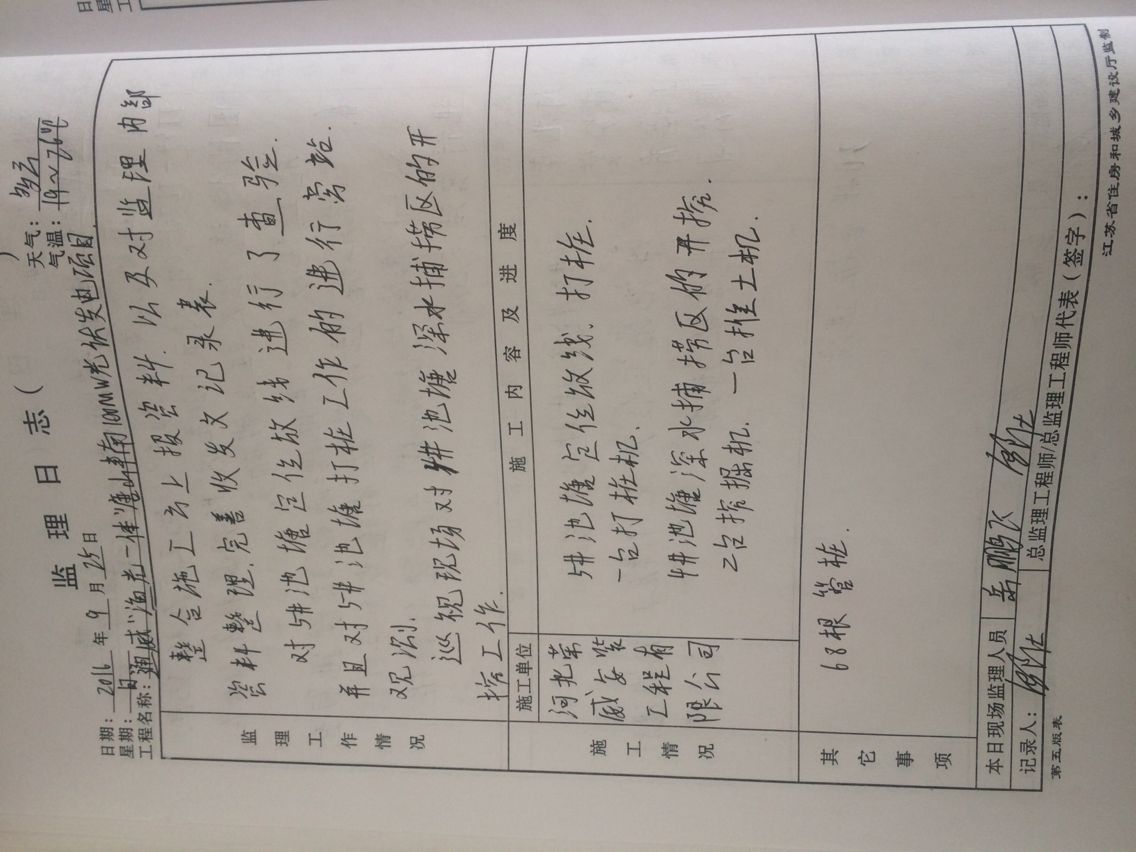 监 理 日 志 (                )
日期: 2016 年 9 月 25 日
天气: 多云
星期: 日
气温: 14~26℃
工程名称: 通威"渔光一体"唐山丰南100MW光伏发电项目
监理工作情况
整合施工方上报资料. 以及对监理内部
资料整理.完善收发文记录表.
对5#池塘定位放线进行了查验.
并且对5#池塘打桩工作的进行旁站.
观测.
巡视现场对4#池塘深水捕捞区的开
挖工作.
施工单位
施 工 内 容 及 进 度
施工情况
安装
工程有
限公司
5#池塘定位放线、打桩.
一台打桩机.
4#池塘深水捕捞区的开挖.
2台挖掘机.一台推土机.
其它事项
68根 管桩.
本日现场监理人员
岳鹏飞
记录人:
总监理工程师/总监理工程师代表(签字):
第五版表
江苏省住房和城乡建设厅监制